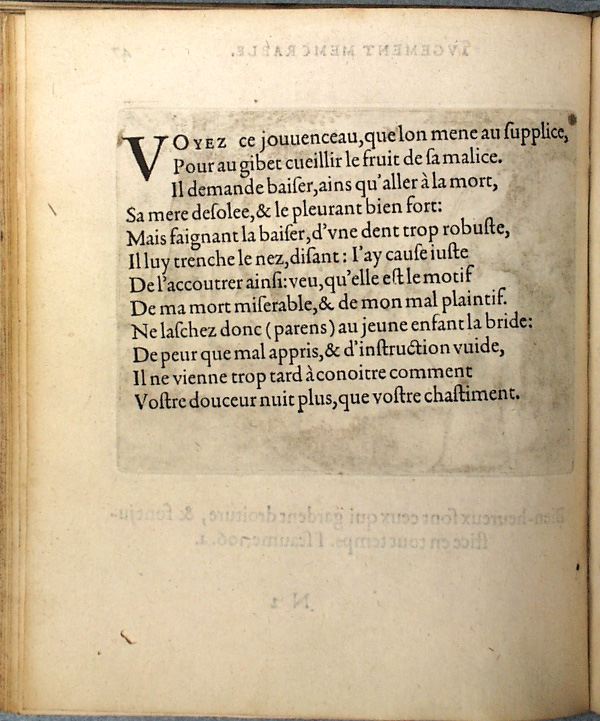 VOYEZ ce jouuenceau, que lon mene au supplice,
Pour au gibet cueillir le fruit de sa malice.
Il demande baiser, ains qu'aller à la mort,
Sa mere desolee, & le pleurant bien fort:
Mais faignant la baiser, d'vne dent trop robuste,
Il luy trenche le nez, disant: I'ay cause iuste
De l'accoutrer ainsi: veu, qu'elle est le motif
De ma mort miserable, & de mon mal plaintif.
Ne laschez donc (parens) au jeune enfant la bride:
De peur que mal appris, & d'instruction vuide,
Il ne vienne trop tard à conoitre comment
Vostre douceur nuit plus, que vostre chastiment.